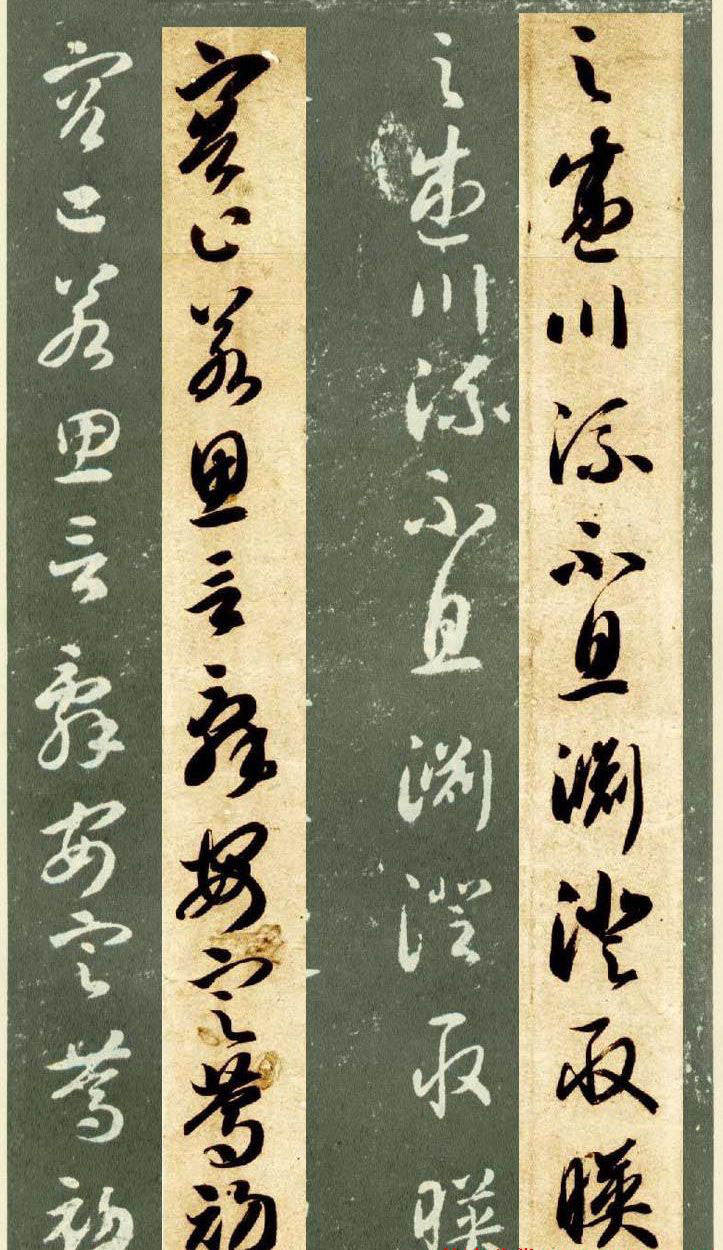 之盛川流不息渊澄取暎
之盛川流不息渊澄取暎
容止若思言辞安定笃初
容止若思言辞安定笃初